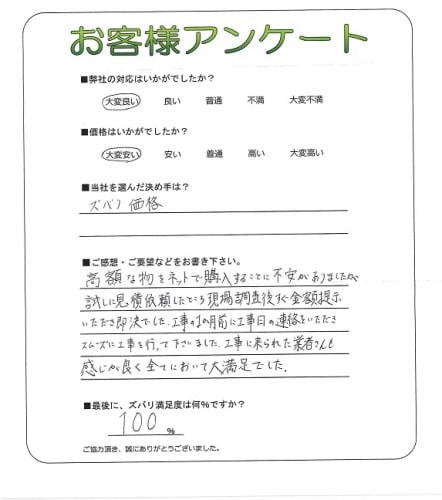 お客様アンケート
■弊社の対応はいかがでしたか?
大変良い 良い 普通 不満 大変不満
■価格はいかがでしたか?
大変安い 安い 普通 高い 大変高い
■当社を選んだ決め手は?
ズバリ価格
■ご感想・ご要望などをお書き下さい。
高額な物をネットで購入することに不安がありましたが
試しに見積依頼したところ現場調査後すぐ金額提示
いただき即決でした。工事の 前に工事日の連絡をいただき
スムーズに工事を行って下さいました。工事に来られた業者さんも
感じが良く全てにおいて大満足でした。
■最後に、ズバリ満足度は何%ですか?
100 %
ご協力頂き、誠にありがとうございました。